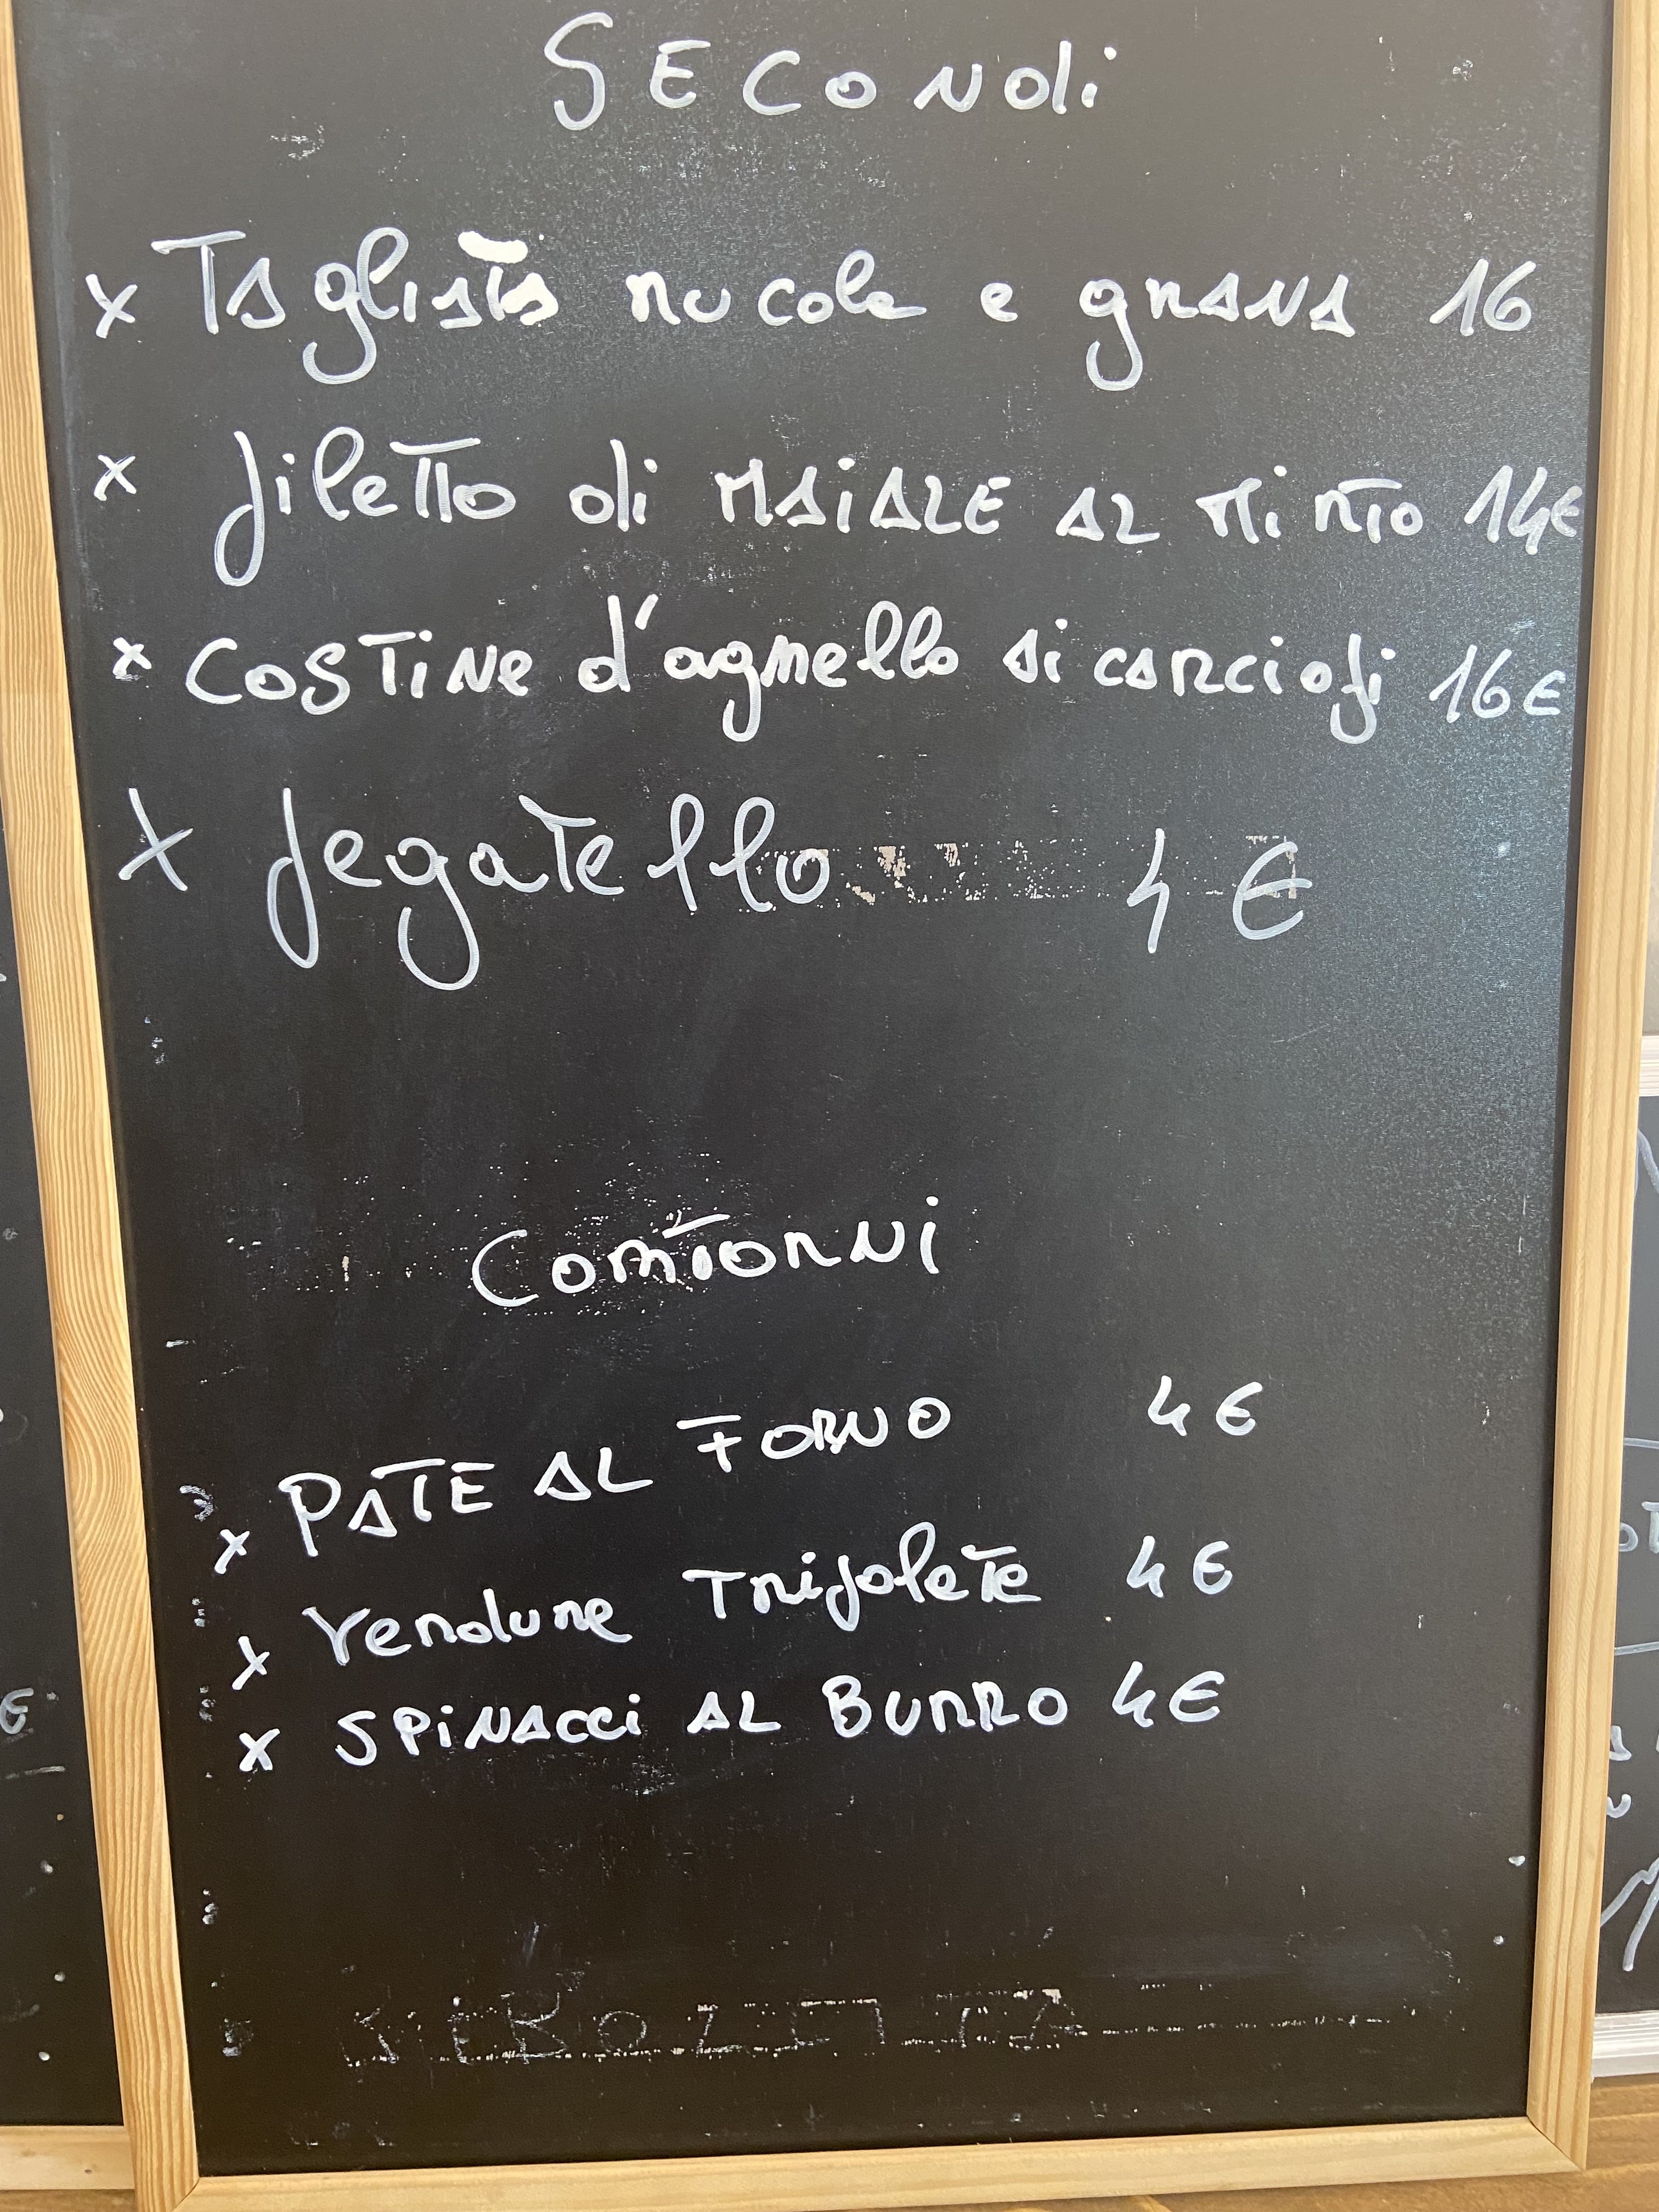 SECONDi
x Tagliata rucola e grana 16
x filetto di MAiALE AL Mirto 14€
x COSTiNe d'agnello ai carciofi 16€
x fegatello 4 €
Contorni
x PATE AL FORNO 4€
x Verdure Trifolate 4€
x SPiNACCi AL BURRO 4€
RiBOLLITA